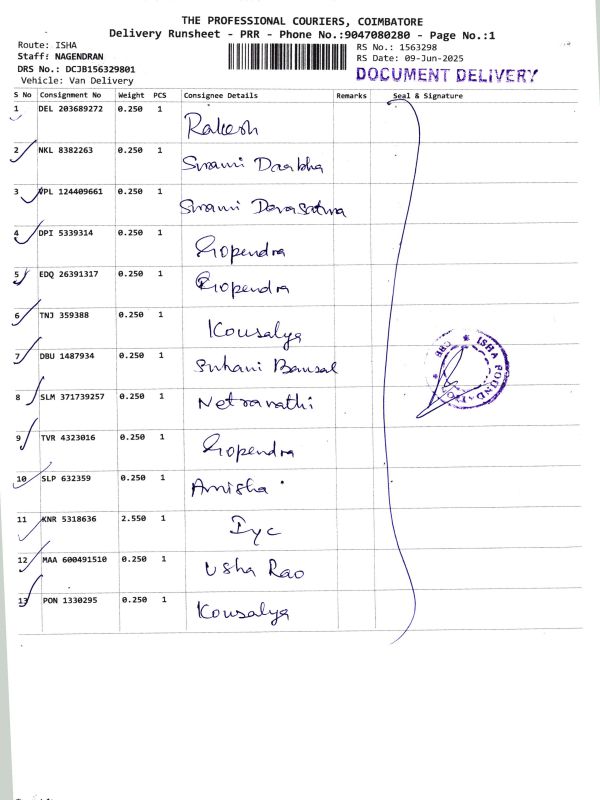 THE PROFESSIONAL COURIERS, COIMBATORE
Delivery Runsheet - PRR - Phone No.:9047080280 - Page No.:1
Route: ISHA
Staff: NAGENDRAN
DRS No.: DCJB156329801
Vehicle: Van Delivery
RS No.: 1563298
RS Date: 09-Jun-2025
DOCUMENT DELIVERY
S No Consignment No Weight PCS Consignee Details Remarks Seal & Signature
1 DEL 203689272 0.250 1 Rakesh
2 NKL 8382263 0.250 1 Swami Daabha
3 VPL 124409661 0.250 1 Swami Devasatwa
4 DPI 5339314 0.250 1 Gopendra
5 EDQ 26391317 0.250 1 Gopendra
6 TNJ 359388 0.250 1 Kousalya
7 DBU 1487934 0.250 1 Suhani Bansal
8 SLM 371739257 0.250 1 Netravathi
9 TVR 4323016 0.250 1 Gopendra
10 SLP 632359 0.250 1 Amisha
11 KNR 5318636 2.550 1 Iyc
12 MAA 600491510 0.250 1 Usha Rao
13 PON 1330295 0.250 1 Kousalya
ISHA FOUNDATION